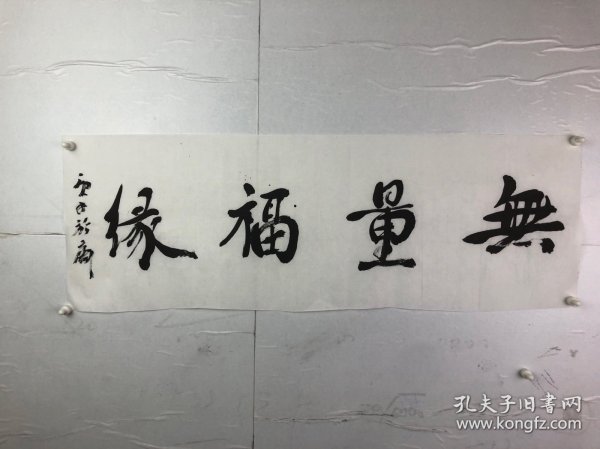 無量福緣
孔夫子旧書网
www.kongfz.com